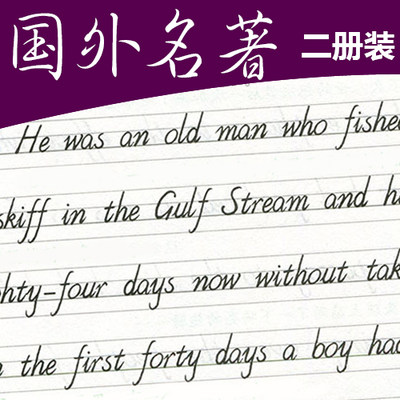 国外名著
二册装
He was an old man who fishe
skiff in the Gulf Stream and h
hty-four days now without tak
the first forty days a boy had